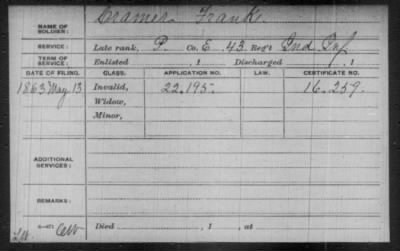 NAME OF SOLDIER: Cramer, Frank.
SERVICE: Late rank, P. Co. E. 43. Reg't Ind. Inf.
TERM OF SERVICE: Enlisted , 1 Discharged , 1
DATE OF FILING. CLASS. APPLICATION NO. LAW. CERTIFICATE NO.
1863 May 13 Invalid, 22.195. 16.259.
Widow,
Minor,
ADDITIONAL SERVICES:
REMARKS:
Died , 1 , at